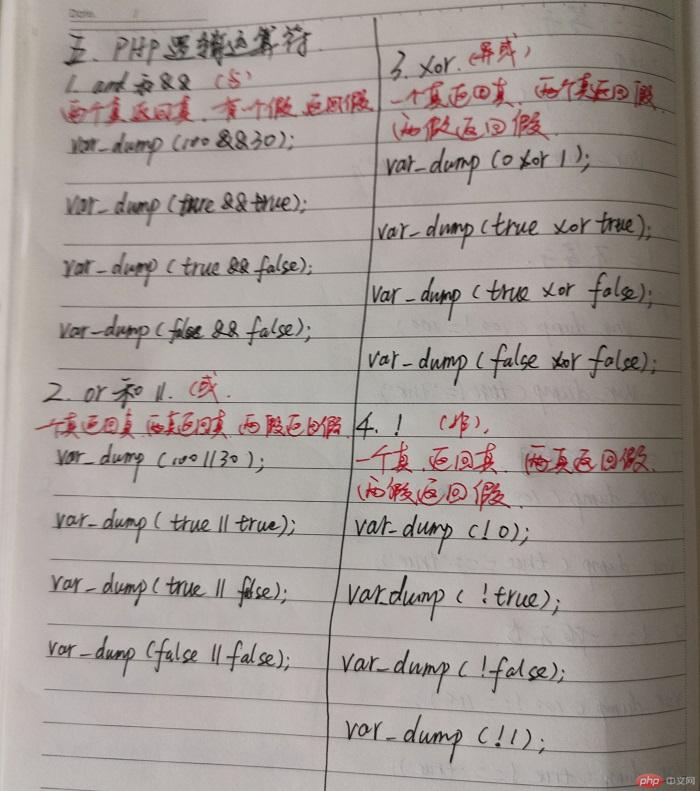 五、PHP逻辑运算符
1. and 和 && (与)
两个真返回真, 有一个假, 返回假
var_dump (100 && 30);
var_dump (true && true);
var_dump (true && false);
var_dump (false && false);
2. or 和 ||. (或.
一个真返回真, 两真返回真, 两假返回假
var_dump (100 || 30);
var_dump (true || true);
var_dump (true || false);
var_dump (false || false);
3. xor. (异或)
一个真返回真, 两个真返回假
两假返回假.
var_dump (0 xor 1);
var_dump (true xor true);
var_dump (true xor false);
var_dump (false xor false);
4. ! (非).
一个真, 返回真, 两真返回假,
两假返回假.
var_dump (!0);
var_dump (!true);
var_dump (!false);
var_dump (!1);
php 中文网